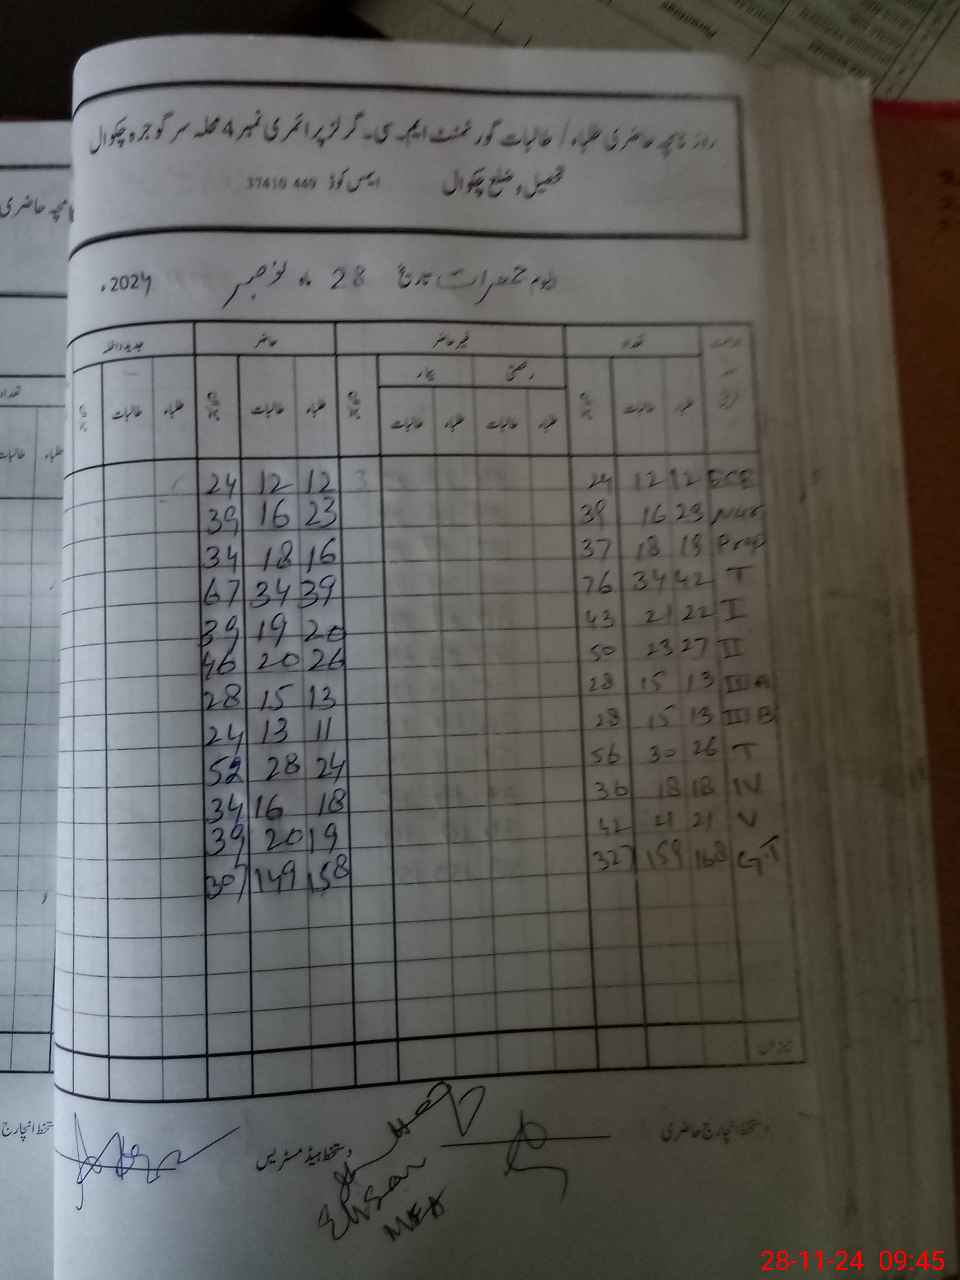 روزنامچہ حاضری طلباء / طالبات گورنمنٹ ایم۔سی۔ گرلز پرائمری نمبر 4 محلہ سرگوجرہ چکوال
تحصیل و ضلع چکوال ایمس کوڈ 37410 449
بروز جمعرات تاریخ 28 ماہ نومبر 2024ء
جماعت تعداد غیر حاضر حاضر جدید داخلہ
رخصتی بیمار
طلباء طالبات میزان طلباء طالبات طلباء طالبات میزان طلباء طالبات میزان طلباء طالبات میزان
ECE 12 12 24 12 12 24
Nur 23 16 39 23 16 39
Prep 19 18 37 16 18 34
T 42 34 76 39 34 67
I 22 21 43 20 19 39
II 27 23 50 26 20 46
III A 13 15 28 13 15 28
III B 13 15 28 11 13 24
T 26 30 56 24 28 52
IV 18 18 36 18 16 34
V 21 21 42 19 20 39
G.T 168 159 327 158 149 307
میزان
دستخط انچارج حاضری
دستخط ہیڈ مسٹریس
Ehsan
MEA
28-11-24 09:45